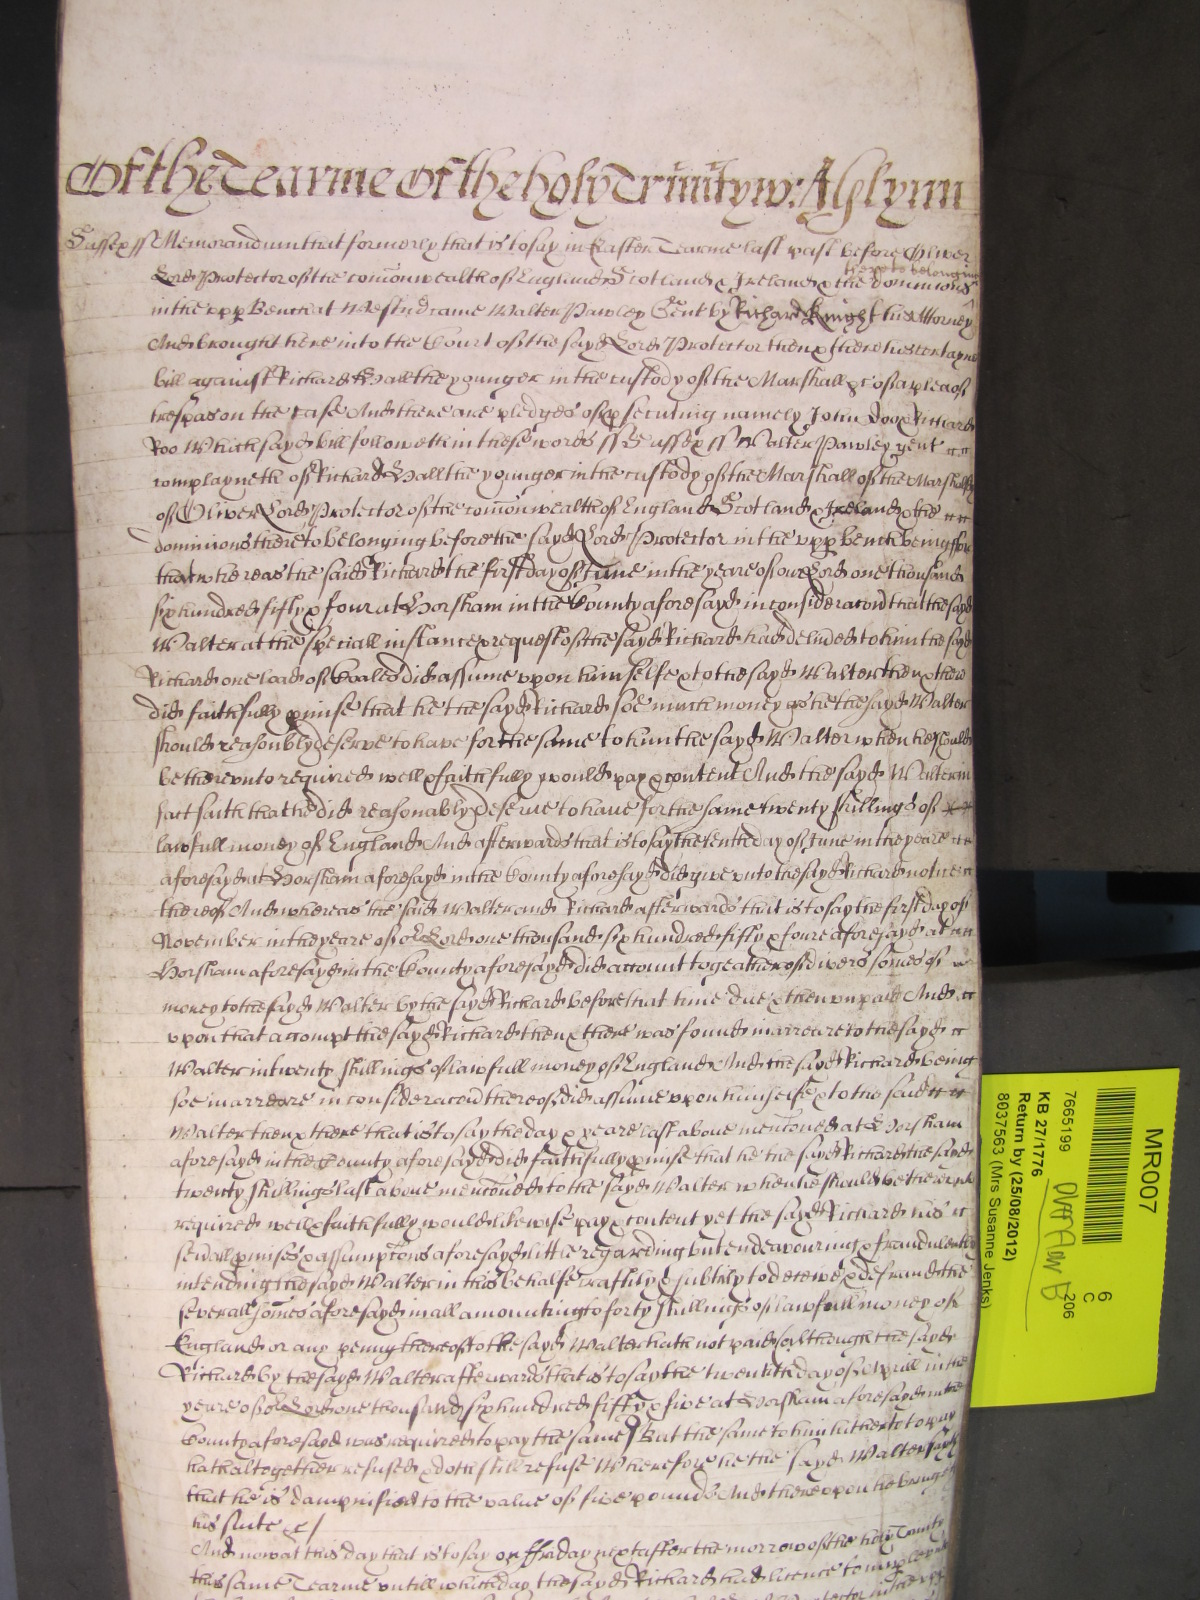 Of the Tearme Of the holy Trinity w: Aslynn
Sussex ss Memorandum that formerly that is to say in Easter Tearme last past before Oliver
thereto belonging
Lord Protector of the comonwealth of England Scotland & Ireland & the dominions
in the upp Bench at Westm came Walter Pawley Gent by Richard Knight his Attorney
And brought here into the Court of the sayd Lord Protector then & there his certayne
bill against Richard Hall the younger in the custody of the Marshall &c of a plea of
trespas on the case And there are pledges of psecuting namely John Doo & Richard
Roo Which sayd bill followeth in these words ss Sussex ss Walter Pawley gent
complayneth of Richard Hall the younger in the custody of the Marshall of the Marshalsey
of Oliver Lord Protector of the comonwealth of England Scotland & Ireland & the
dominions thereto belonging before the sayd Lord Protector in the upp bench being for
that whereas the said Richard the first day of June in the yeare of our Lord one thousand
six hundred fifty & four at Horsham in the County aforesayd in consideracon that the sayd
Walter at the speciall instance & request of the sayd Richard had delived to him the sayd
Richard one load of Coales did assume upon himselfe & to the sayd Walter then & there
did faithfully pmise that he the sayd Richard soe much money as he the sayd Walter
should reasonbly deserve to have for the same to him the sayd Walter when he should
be thereunto required well & faithfully would pay & content And the sayd Walter in
fact saith that he did reasonably deserve to have for the same twenty shillings of
lawfull money of England And afterwards that is to say the tenth day of June in the yeare
aforesayd at Horsham aforesayd in the County aforesayd did give unto the sayd Richard notice
thereof And whereas the said Walter and Richard afterwards that is to say the first day of
November in the yeare of o Lord one thousand six hundred fifty & foure aforesayd at
Horsham aforesayd in the County aforesayd did account togeather of divers somes of
money to the sayd Walter by the sayd Richard before that time due & then unpaid And
upon that accompt the sayd Richard then & there was found in arreare to the sayd
Walter in twenty shillings of lawfull money of England And the sayd Richard being
soe in arreare in consideracon thereof did assume upon himselfe & to the said
Walter then & there that is to say the day & yeare last above menconed at Horsham
aforesayd in the County aforesayd did faithfully pmise that he the sayd Richard the sayd
twenty shillings last above menconed to the sayd Walter when he should be thereunto
required well & faithfully would likewise pay & content yet the sayd Richard his
sevall pmises & assumptons aforesayd little regarding but endeavouring & fraudulently
intending the sayd Walter in this behalfe craftily & subtily to deceive & defraud the
severall somes aforesayd in all amounting to forty shillings of lawfull money of
England or any penny thereof to the sayd Walter hath not paid (although the sayd
Richard by the sayd Walter afterwards that is to say the twentith day of Aprill in the
yeare of o Lord one thousand six hundred fifty & five at Horsham aforesayd in the
County aforesayd was required to pay the same) But the same to him hitherto to pay
hath altogether refused & doth still refuse Wherefore he the sayd Walter sayth
that he is dampnified to the value of five pounds And thereupon he bringeth
his suite &c/
And now at this day that is to say on ffriday next after the morrow of the holy Trinity
this same Tearme untill which day the sayd Richard had licence to imparle
MR007
6
C
206
7665199
KB 27/1776
Return by (25/08/2012)
8037563 (Mrs Susanne Jenks)